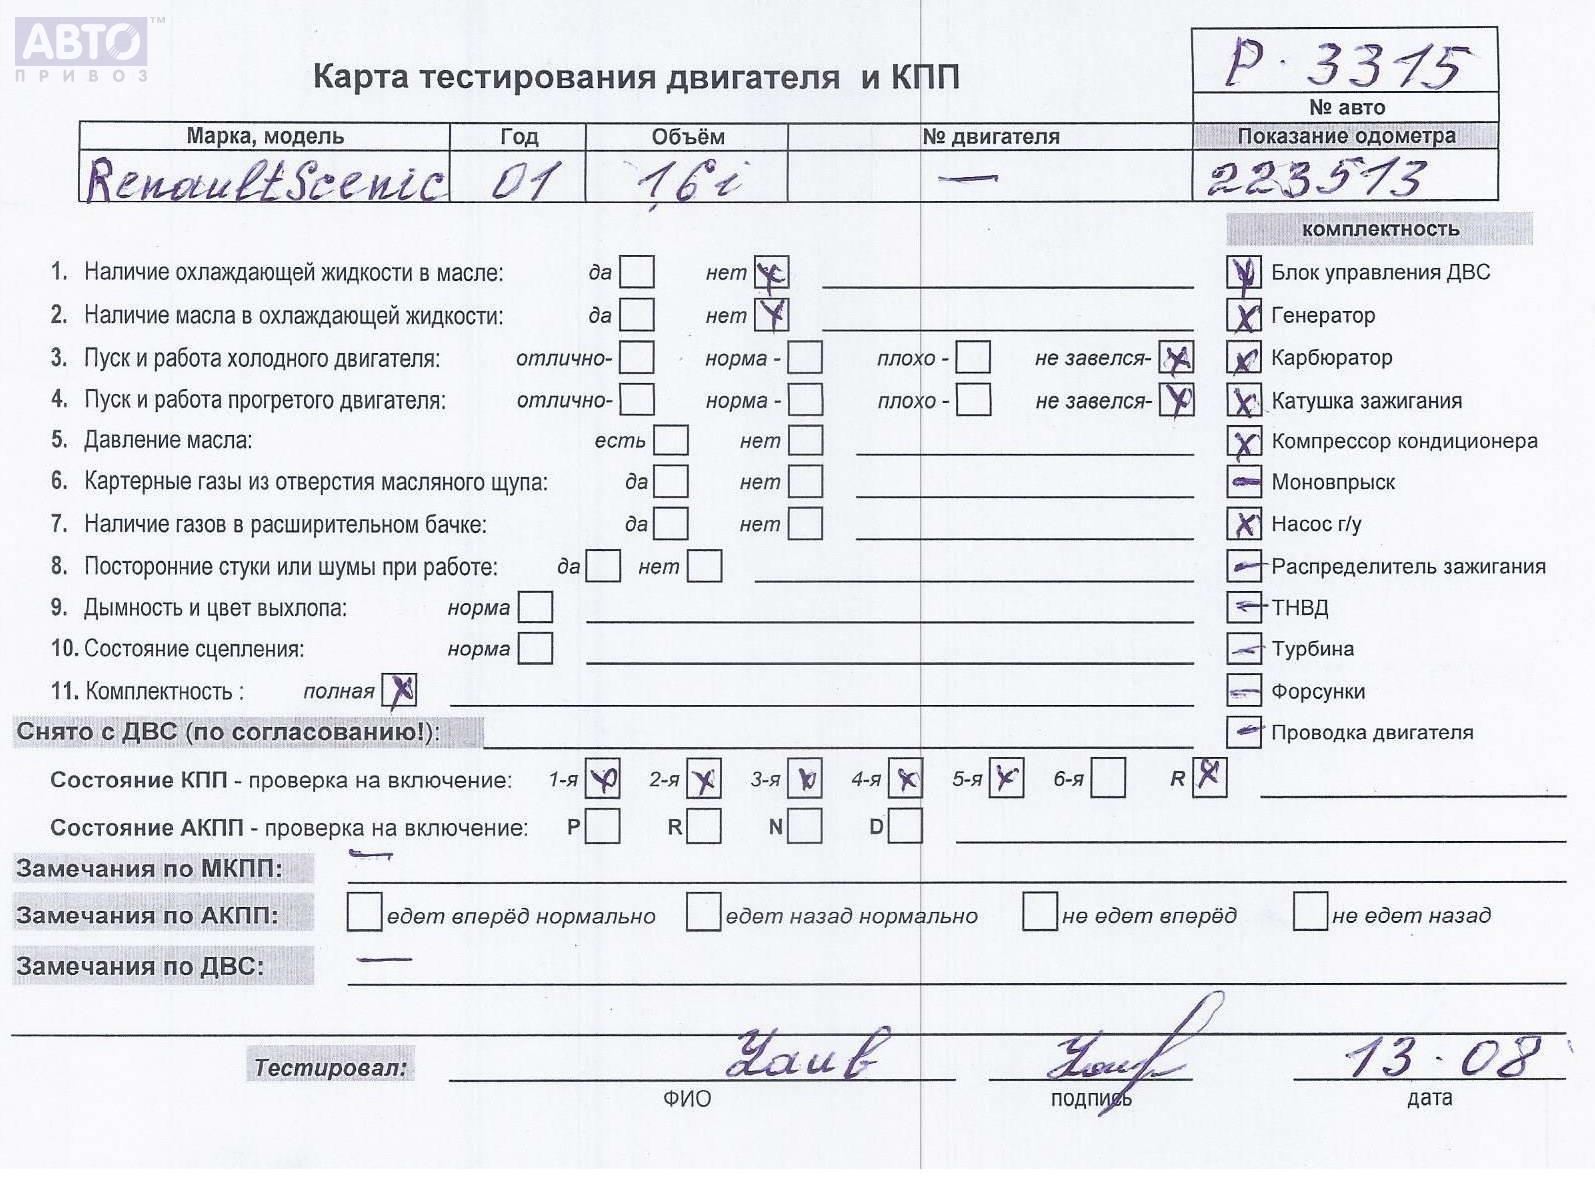 АВТО™
ПРИВОЗ
Карта тестирования двигателя и КПП
Р. 3315
№ авто
Марка, модель Год Объём № двигателя Показание одометра
Renault Scenic 01 1,6i — 223513
комплектность
1. Наличие охлаждающей жидкости в масле: да нет Блок управления ДВС
2. Наличие масла в охлаждающей жидкости: да нет Генератор
3. Пуск и работа холодного двигателя: отлично- норма - плохо - не завелся- Карбюратор
4. Пуск и работа прогретого двигателя: отлично- норма - плохо - не завелся- Катушка зажигания
5. Давление масла: есть нет Компрессор кондиционера
6. Картерные газы из отверстия масляного щупа: да нет Моновпрыск
7. Наличие газов в расширительном бачке: да нет Насос г/у
8. Посторонние стуки или шумы при работе: да нет Распределитель зажигания
9. Дымность и цвет выхлопа: норма ТНВД
10. Состояние сцепления: норма Турбина
11. Комплектность : полная Форсунки
Снято с ДВС (по согласованию!): Проводка двигателя
Состояние КПП - проверка на включение: 1-я 2-я 3-я 4-я 5-я 6-я R
Состояние АКПП - проверка на включение: P R N D
Замечания по МКПП: —
Замечания по АКПП: едет вперёд нормально едет назад нормально не едет вперёд не едет назад
Замечания по ДВС: —
Тестировал: 13.08
ФИО подпись дата